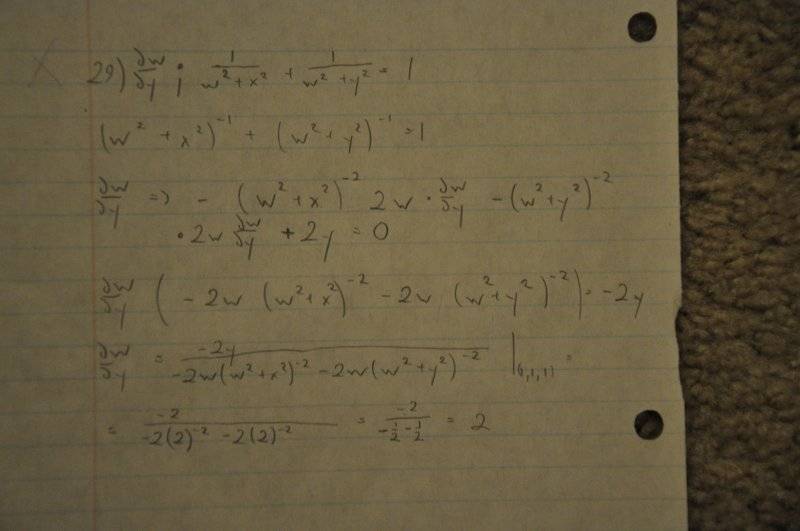 29) ∂w/∂y ; 1/(w² + x²) + 1/(w² + y²) = 1
(w² + x²)⁻¹ + (w² + y²)⁻¹ = 1
∂w/∂y => - (w² + x²)⁻² 2w · ∂w/∂y - (w² + y²)⁻²
· 2w ∂w/∂y + 2y = 0
∂w/∂y ( - 2w (w² + x²)⁻² - 2w (w² + y²)⁻² ) = -2y
∂w/∂y = -2y / (-2w(w² + x²)⁻² - 2w(w² + y²)⁻²) |(1,1,1) =
= -2 / (-2(2)⁻² - 2(2)⁻²) = -2 / (-1/2 - 1/2) = 2